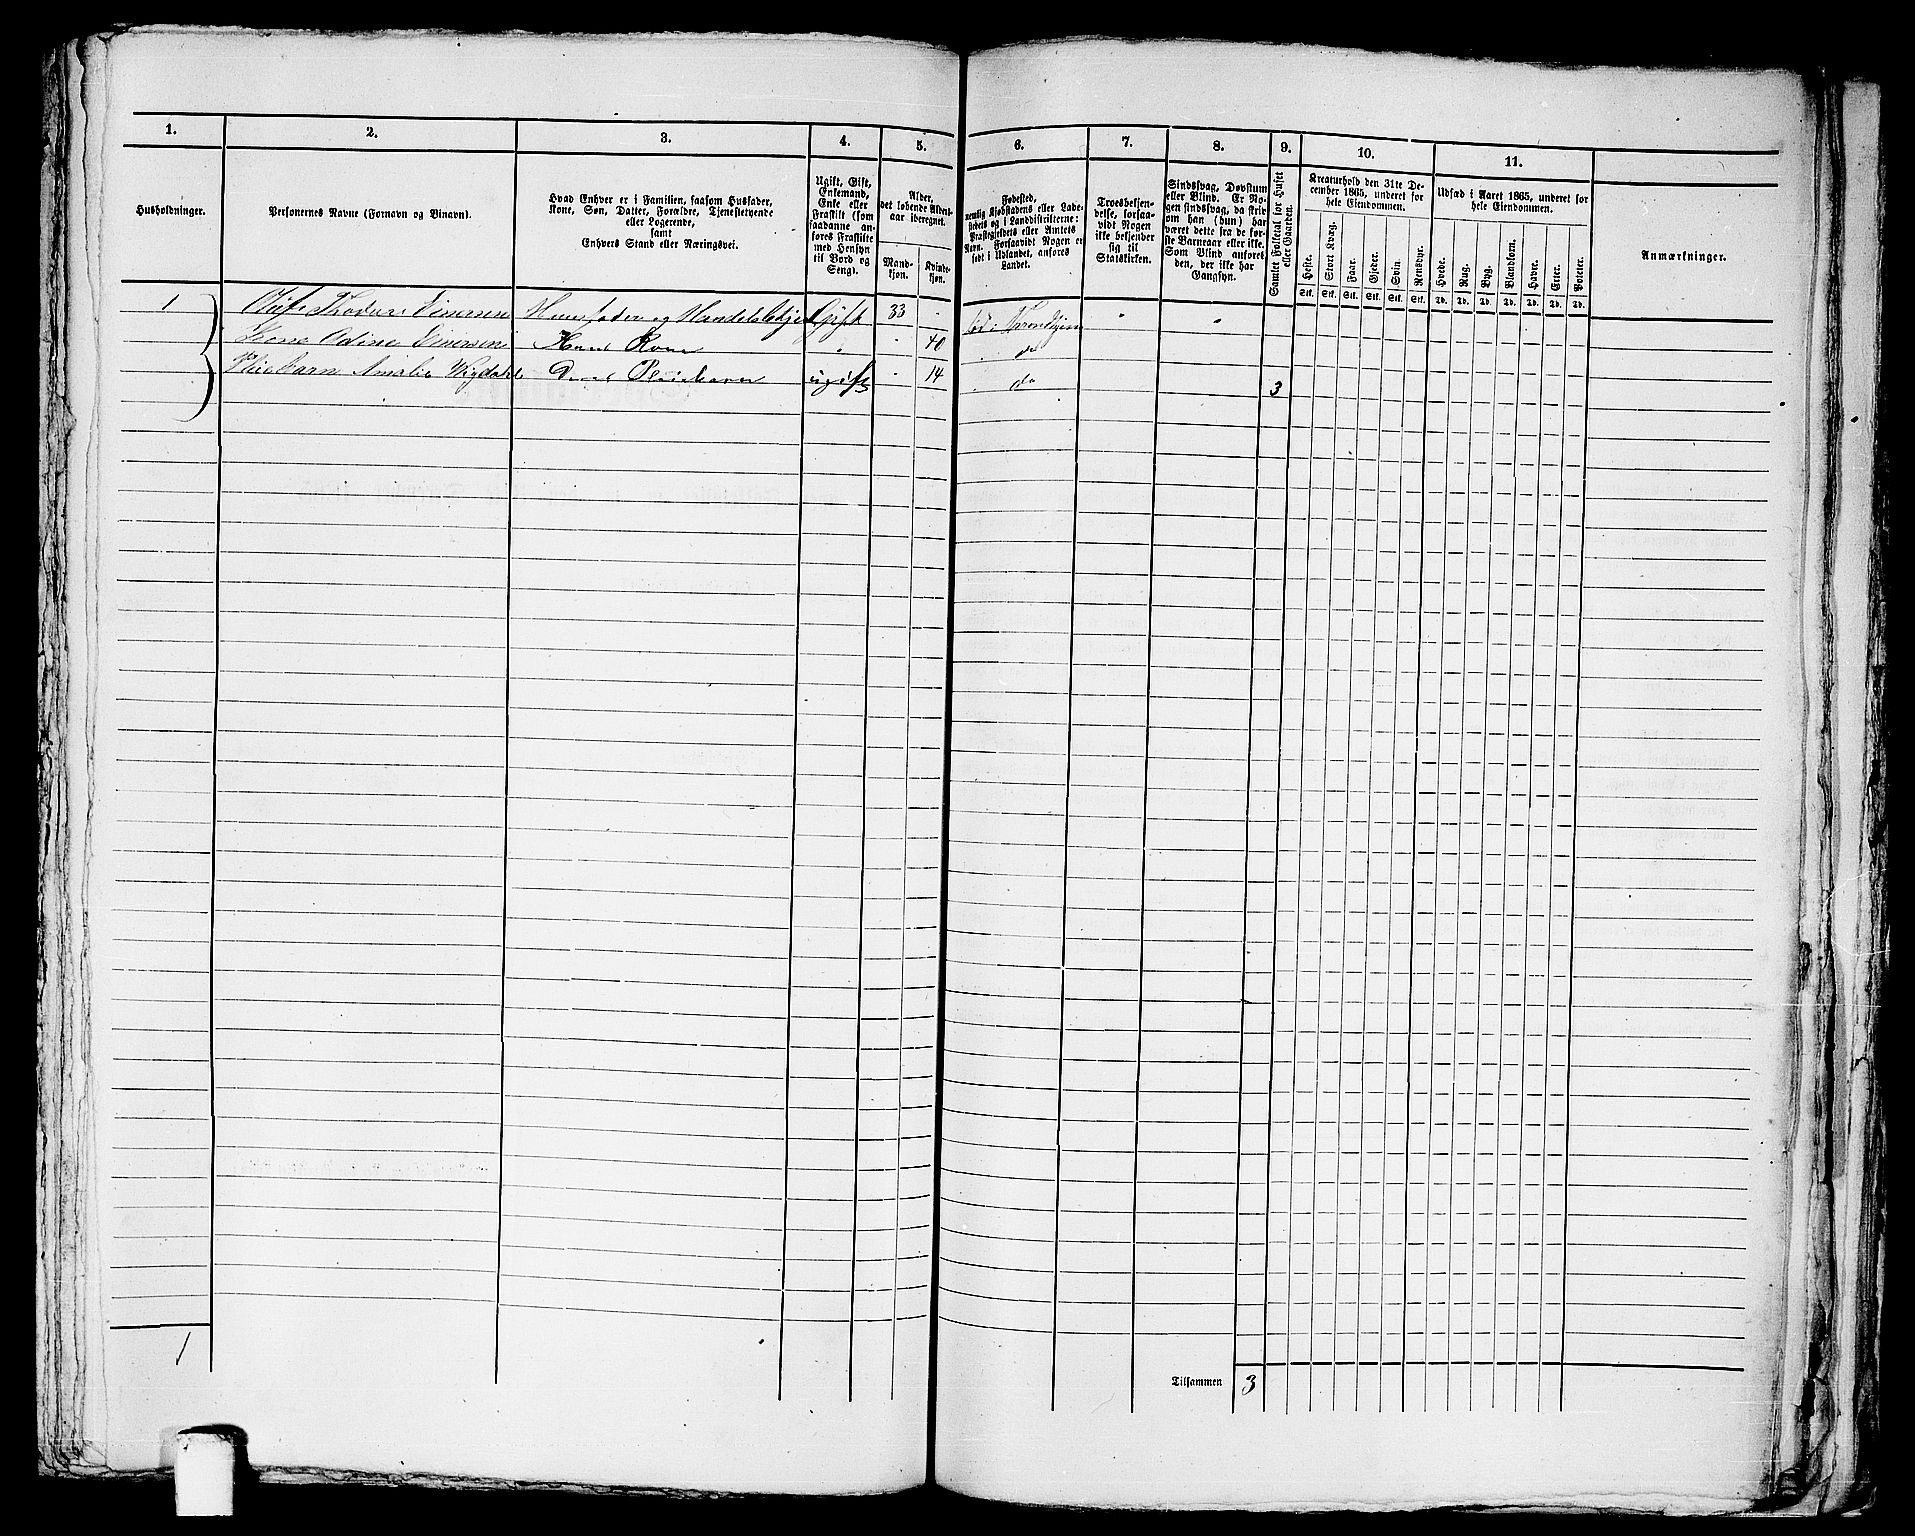 1. 2. 3. 4. 5. 6. 7. 8. 9. 10. 11.
Husholdninger.
Personernes Navne (Fornavn og Binavn).
Hvad Enhver er i Familien, saasom Husfader,
Kone, Søn, Datter, Forældre, Tjenestetyende
eller Logerende,
samt
Enhvers Stand eller Næringsvei.
Ugift, Gift,
Enkemand,
Enke eller
Fraskilt (som
saadanne an-
føres Fraskilte
med Hensyn
til Bord og
Seng).
Alder,
det løbende Alders-
aar iberegnet.
Mand-
kjøn.
Kvinde-
kjøn.
Fødested,
nemlig Kjøbstadens eller Lade-
stedets og i Landdistrikterne:
Præstegjeldets eller Amtets
Navn. Forsaavidt Nogen er
født i Udlandet, anføres
Landet.
Troesbekjen-
delse, forsaa-
vidt Nogen
ikke bekjender
sig til
Statskirken.
Sindssvag, Døvstum
eller Blind. Er No-
gen sindssvag, da skriv
om han (hun) har
været dette fra de før-
ste Barneaar eller ikke.
Som Blind anføres
den, der ikke har
Gangsyn.
Samlet Folketal for Huset
eller Gaarden.
Kreaturhold den 31te De-
cember 1865, underet for
hele Eiendommen.
Heste. Stort Kvæg. Faar. Gjeder. Svin. Rensdyr.
Stk. Stk. Stk. Stk. Stk. Stk.
Udsæd i Aaret 1865, underet for
hele Eiendommen.
Hvede. Rug. Byg. Blandkorn. Havre. Erter. Poteter.
Td. Td. Td. Td. Td. Td. Td.
Anmærkninger.
1 Einersen Huusfader og Gift 33 -
Odine Einersen Hans Kone " 40 do
Pleiebarn Amalie Wigdahl Deres Pleiebarn ugift - 14 do 3
1
Tilsammen 3